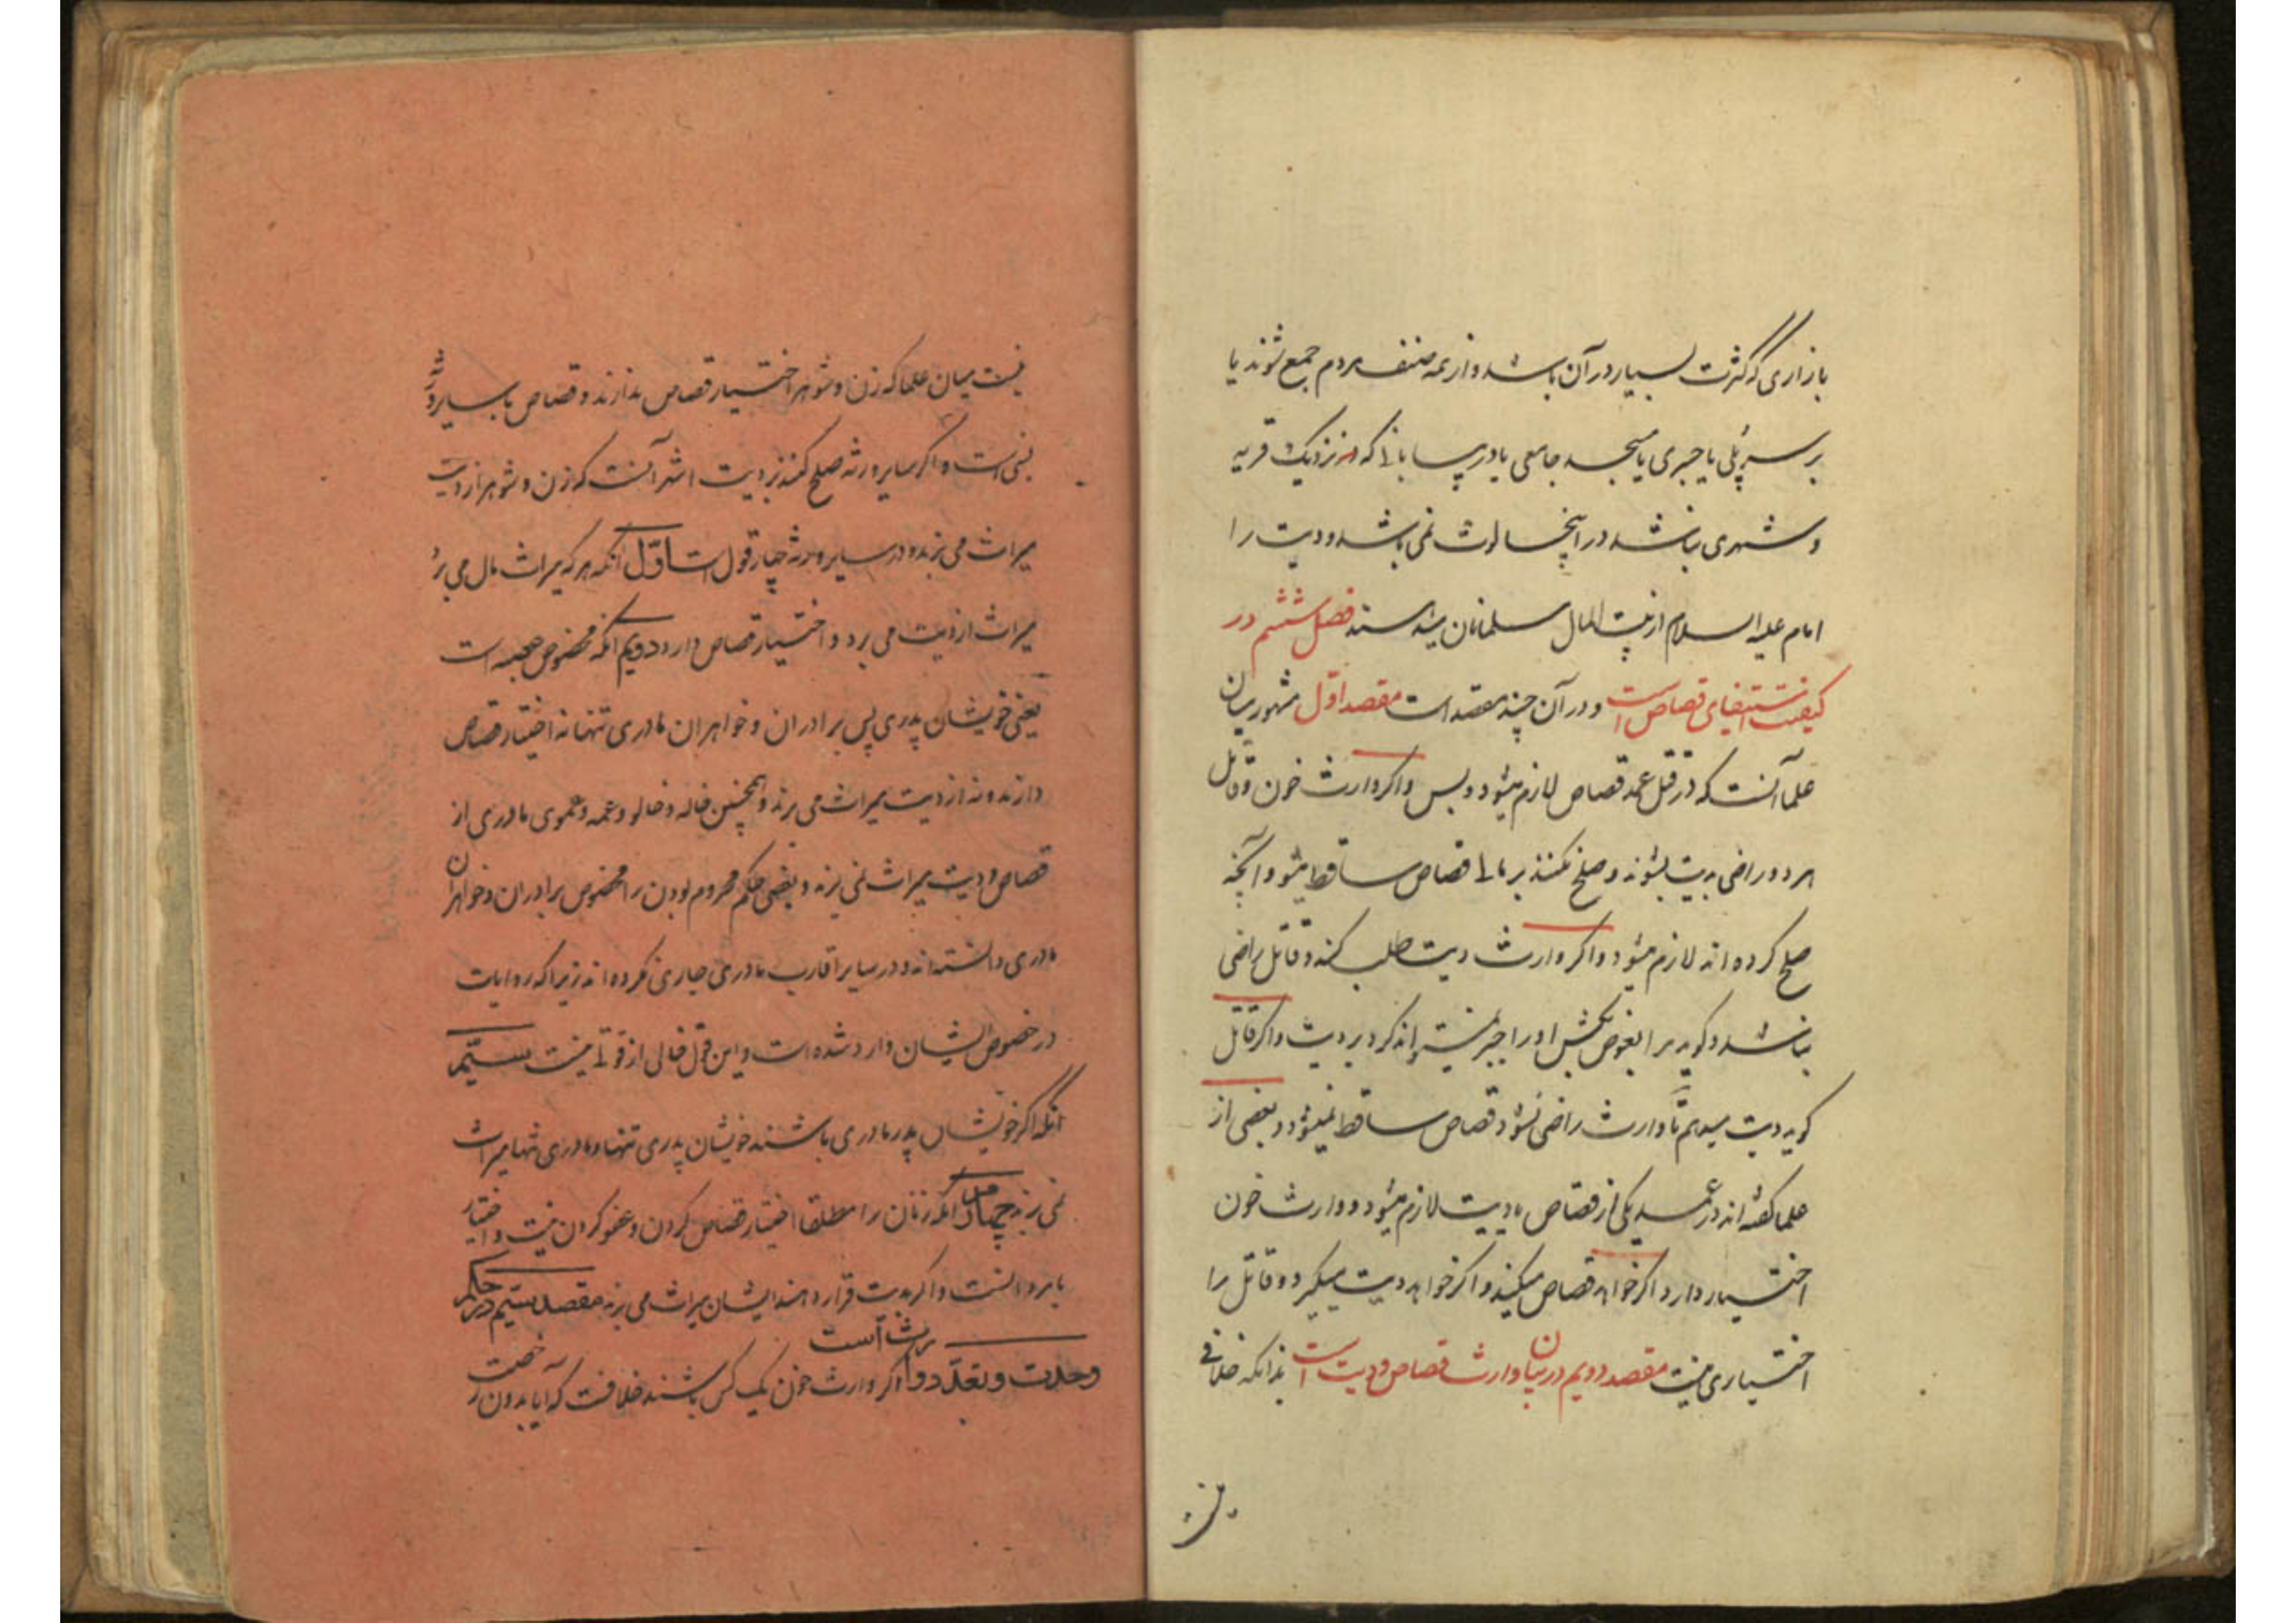 بازاری که کثرت بسیار در آن باشد و از همه صنف مردم جمع شوند یا
بر سر پلی یا جسری یا مسجد جامعی یا در بیابانی که در نزدیک قریه
و شهری نباشد در اینجا لوث نمی باشد و دیت را
امام علیه السلام از بیت المال مسلمانان میدهد فصل ششم در
کیفیت استیفای قصاص است و در آن چند مقصد است مقصد اوّل مشهور میان
علما آنست که در قتل عمد قصاص لازم میشود و بس و اکر وارث خون و قاتل
هر دو راضی بدیت بشوند و صلح بکنند بر مالی قصاص ساقط میشود و آنچه
صلح کرده اند لازم میشود و اکر وارث دیت طلب کند و قاتل راضی
نباشد و کوید مرا بعوض بکش او را جبر نمیتواند کرد بر دیت و اکر قاتل
کوید دیت میدهم تا وارث راضی نشود قصاص ساقط نمیشود و بعضی از
علما کفته اند در عمد یکی از قصاص یا دیت لازم میشود و وارث خون
اختیار دارد اکر خواهد قصاص میکند و اکر خواهد دیت میکیرد و قاتل را
اختیاری نیست مقصد دویم در بیان وارث قصاص و دیت است بدانکه خلافی
نیست میان علما که زن و شوهر اختیار قصاص ندارند و قصاص با سایر ورثه
نسبی است و اکر سایر ورثه صلح کنند بر دیت اشهر آنست که زن و شوهر از دیت
میراث می برند و در سایر ورثه چهار قول است اوّل آنکه هر که میراث مال می برد
میراث از دیت می برد و اختیار قصاص دارد دویم آنکه مخصوص عصبه است
یعنی خویشان پدری پس برادران و خواهران مادری تنها نه اختیار قصاص
دارند و نه از دیت میراث می برند و همچنین خاله و خالو و عمه و عموی مادری از
قصاص و دیت میراث نمی برند و بعضی حکم محروم بودن را مخصوص برادران و خواهران
مادری دانسته اند و در سایر اقارب مادری جاری نکرده اند زیرا که روایات
در خصوص ایشان وارد شده است و این قول خالی از قوتی نیست سیّم
آنکه اکر خویشان پدر مادری باشند خویشان پدری تنها و مادری تنها میراث
نمی برند چهارم آنکه زنان را مطلقا اختیار قصاص کردن و عفو کردن نیست و اختیار
با مردانست و اکر بدیت قرار دهند ایشان میراث می برند مقصد سیّم در حکم
وحدت و تعدّد وارث است اکر وارث خون یک کس باشند خلافست که آیا بدون رخصت